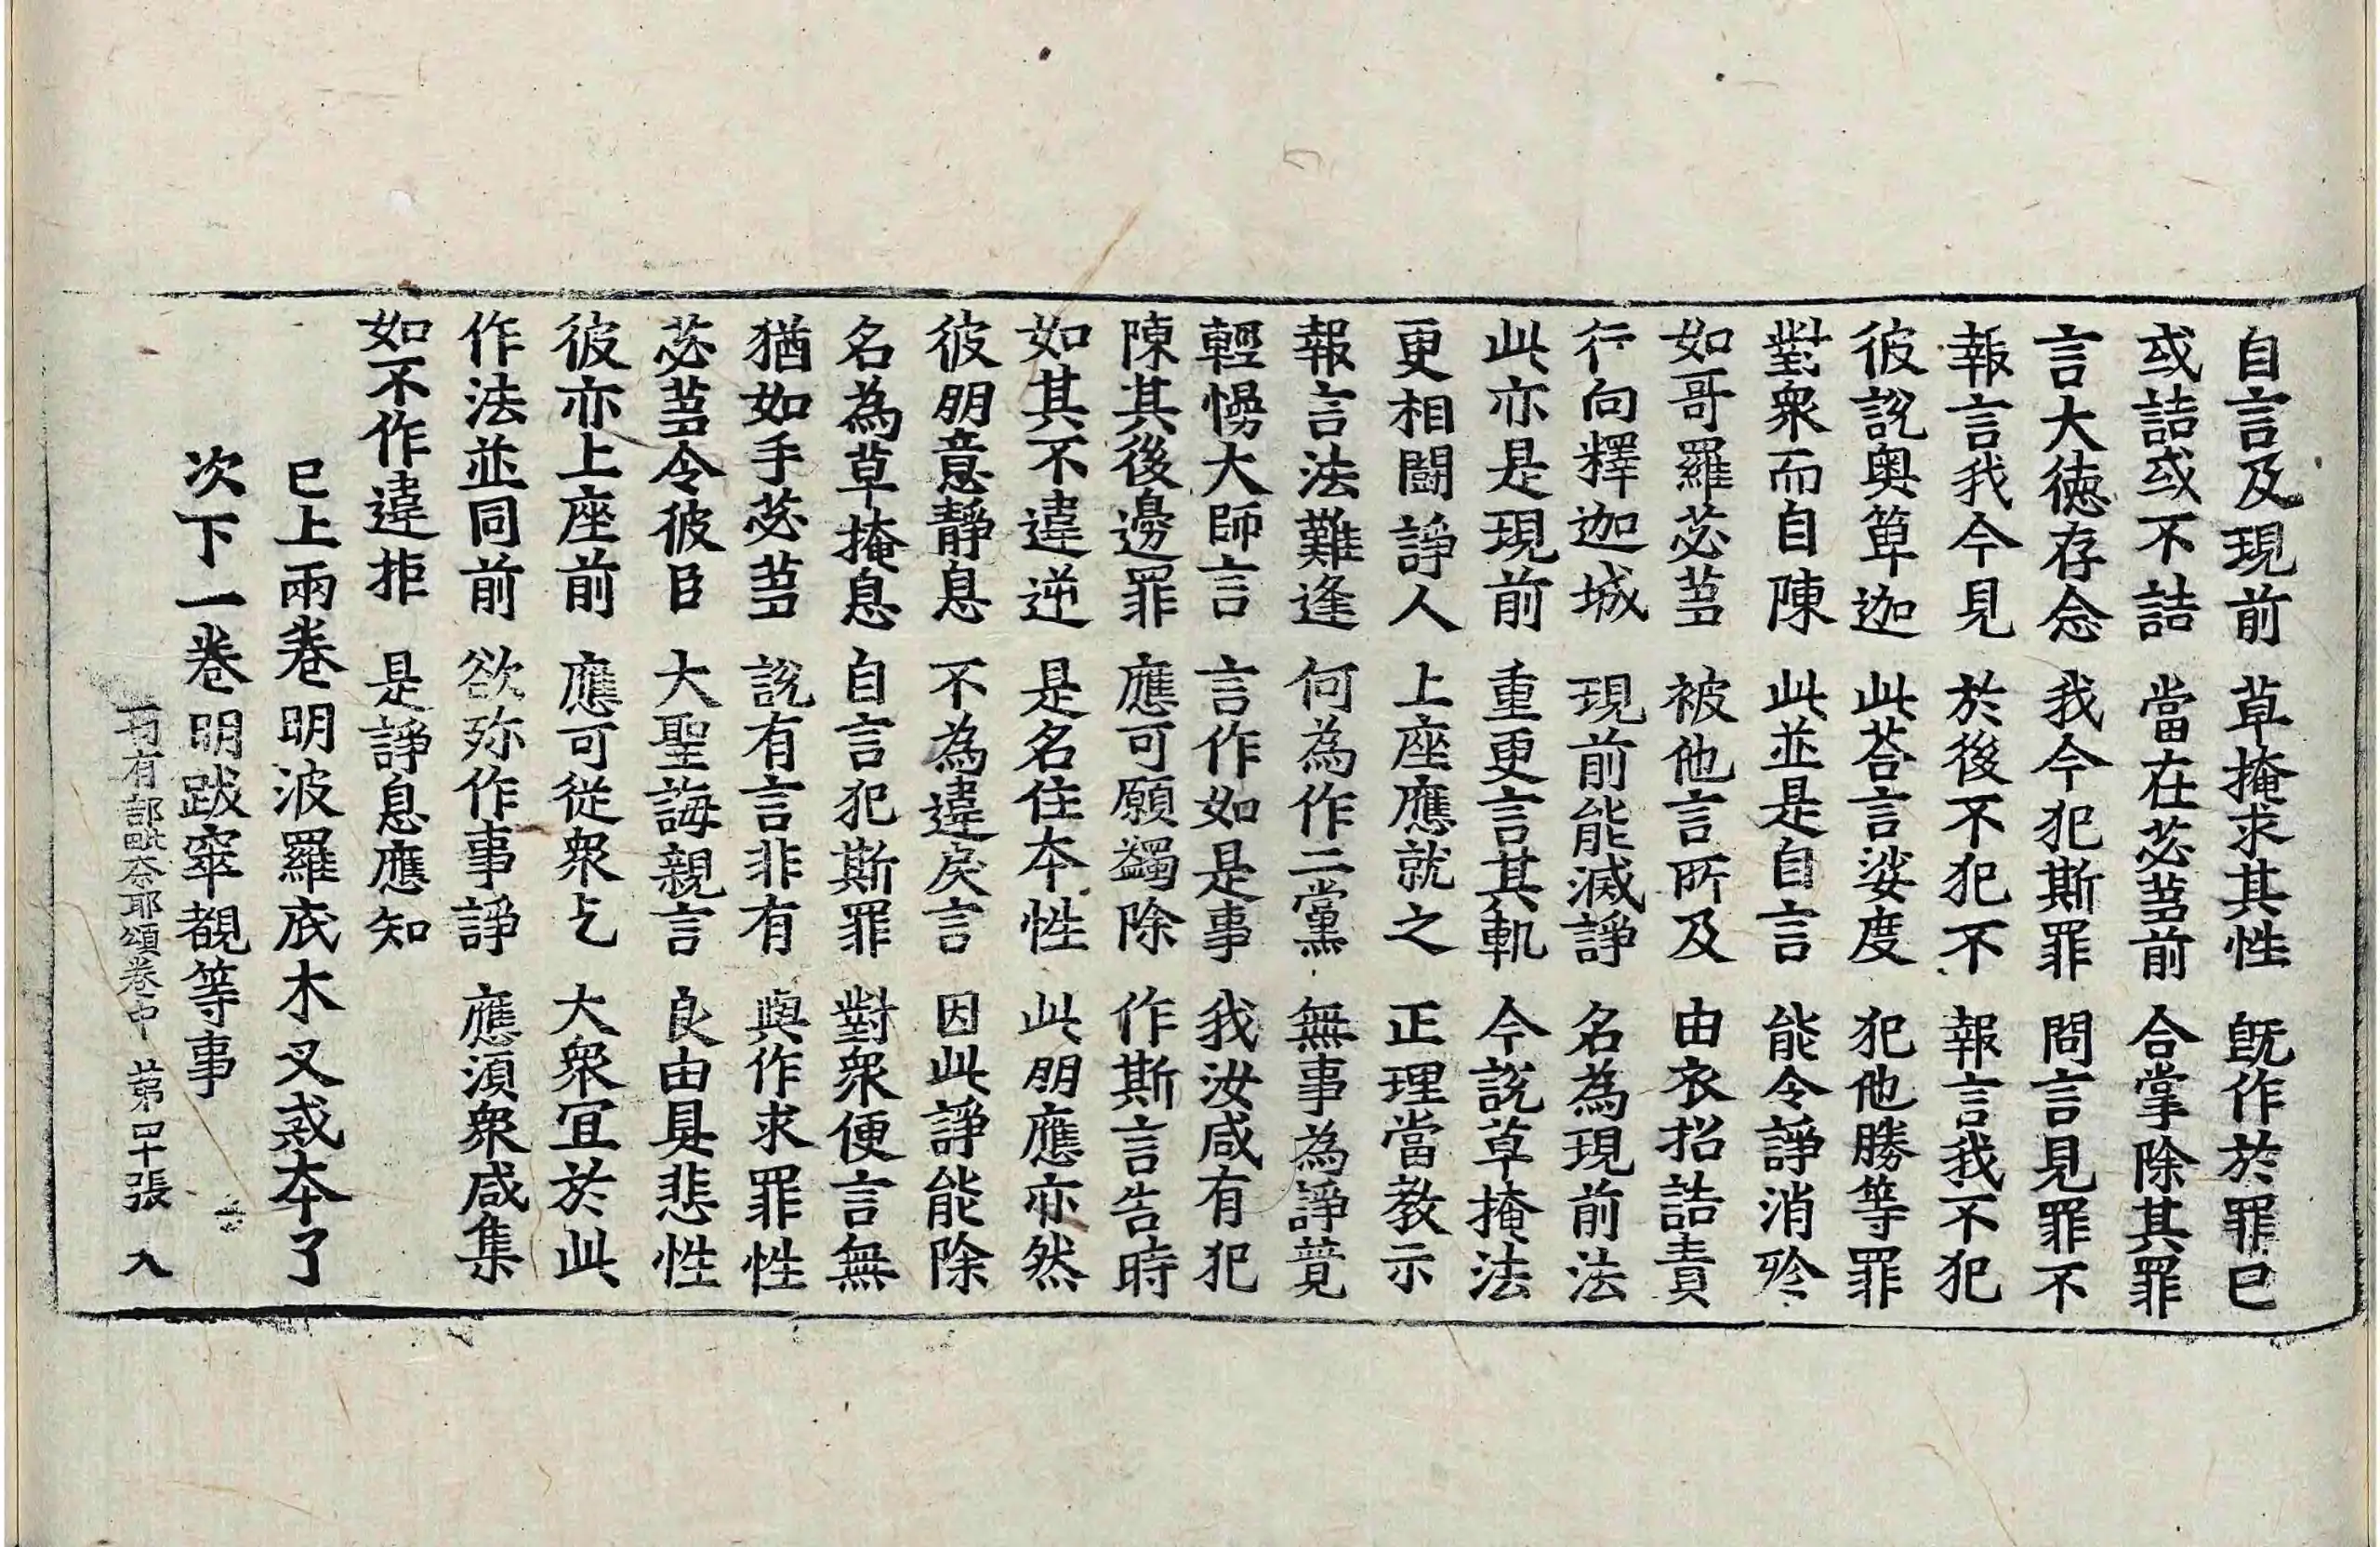 自言及現前 草掩求其性 旣作於罪已
或詰或不詰 當在苾蒭前 合掌除其罪
言大徳存念 我今犯斯罪 問言見罪不
報言我今見 於後不犯不 報言我不犯
彼說奧箄迦 此荅言娑度 犯他勝等罪
對衆而自陳 此並是自言 能令諍消殄
如哥羅苾蒭 被他言所及 由衣招詰責
行向釋迦城 現前能滅諍 名為現前法
此亦是現前 重更言其軌 今說草掩法
更相鬪諍人 上座應就之 正理當教示
報言法難逢 何為作二黨 無事為諍競
輕慢大師言 言作如是事 我汝咸有犯
陳其後邊罪 應可願蠲除 作斯言告時
如其不違逆 是名住本性 此朋應亦然
彼朋意靜息 不為違戾言 因此諍能除
名為草掩息 自言犯斯罪 對衆便言無
猶如手苾蒭 說有言非有 與作求罪性
苾蒭令彼臣 大聖誨親言 良由具悲性
彼亦上座前 應可從衆乞 大衆宜於此
作法並同前 欲殄作事諍 應須衆咸集
如不作違拒 是諍息應知
已上兩卷明波羅底木叉戒本了
次下一卷明跋窣覩等事
有部毗奈耶頌卷中 第四十張 入